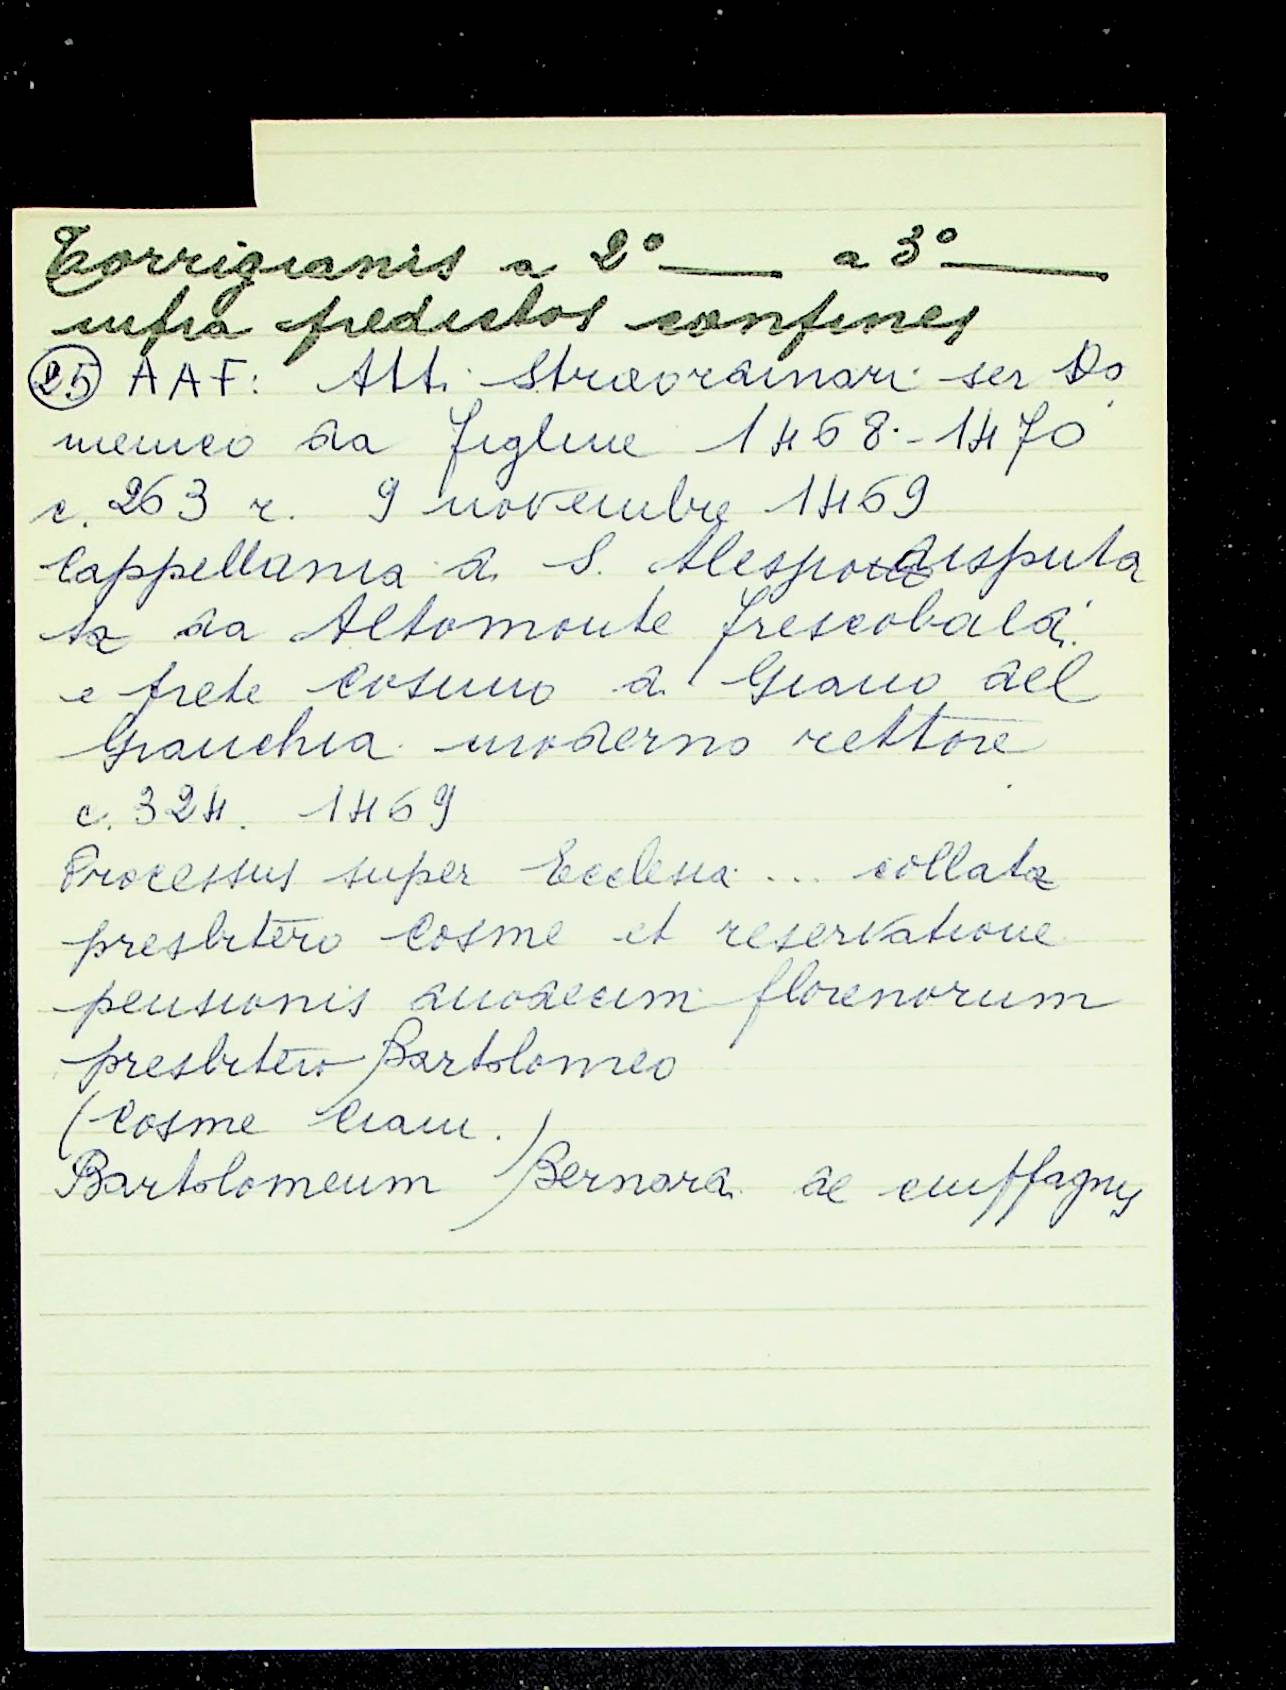 Torrigianis a 2° ___ a 3° ___
infra predictos confines
(25) AAF: Atti Straordinari ser Do
menico da Figline 1468-1470
c. 263 r. 9 novembre 1469
Cappellania di S. disputa
ta da Altomonte Frescobaldi
e prete Cosimo di Giano del
Granchia moderno rettore
c. 324. 1469
Processus super Ecclesia ... collata
presbitero Cosme et reservatione
pensionis duodecim florenorum
presbitero Bartolomeo
(Cosme Ciani.)
Bartolomeum Bernardi de